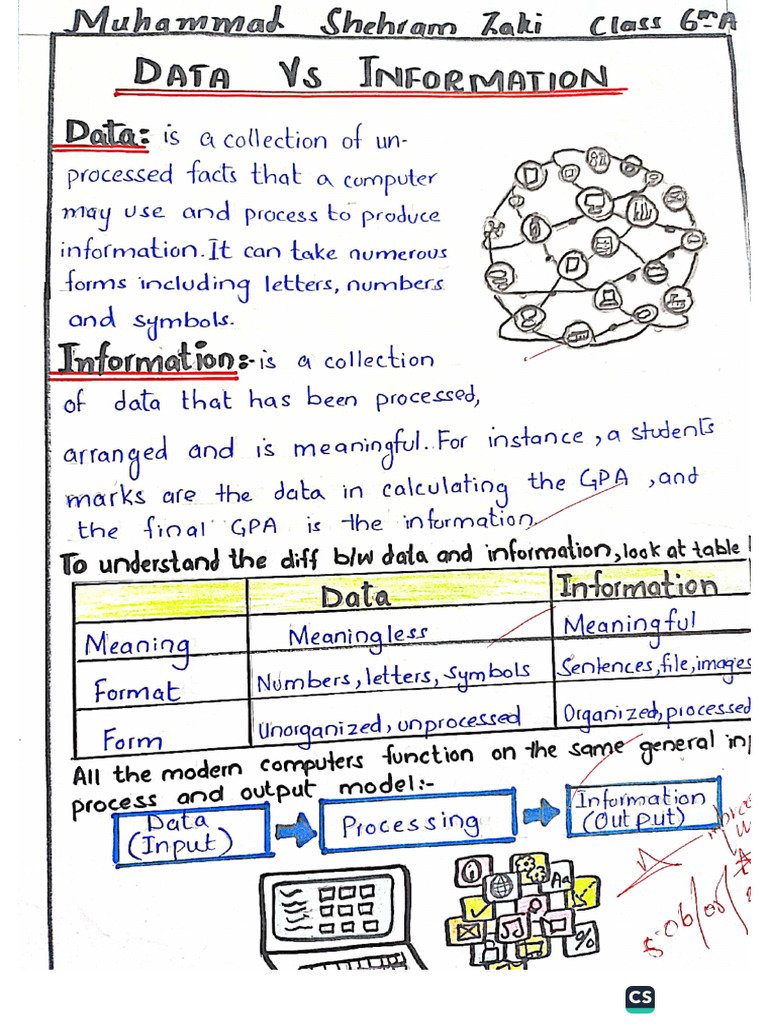 Muhammad Shehram Zaki Class 6th A
DATA Vs INFORMATION
Data: is a collection of un-
processed facts that a computer
may use and process to produce
information. It can take numerous
forms including letters, numbers
and symbols.
Information:- is a collection
of data that has been processed,
arranged and is meaningful. For instance, a students
marks are the data in calculating the GPA, and
the final GPA is the information.
To understand the diff b/w data and information, look at table
Data Information
Meaning Meaningless Meaningful
Format Numbers, letters, symbols Sentences, file, images
Form Unorganized, unprocessed Organized, processed
All the modern computers function on the same general
process and output model:-
Data
(Input)
Processing
Information
(Output)
Aa
%
CS